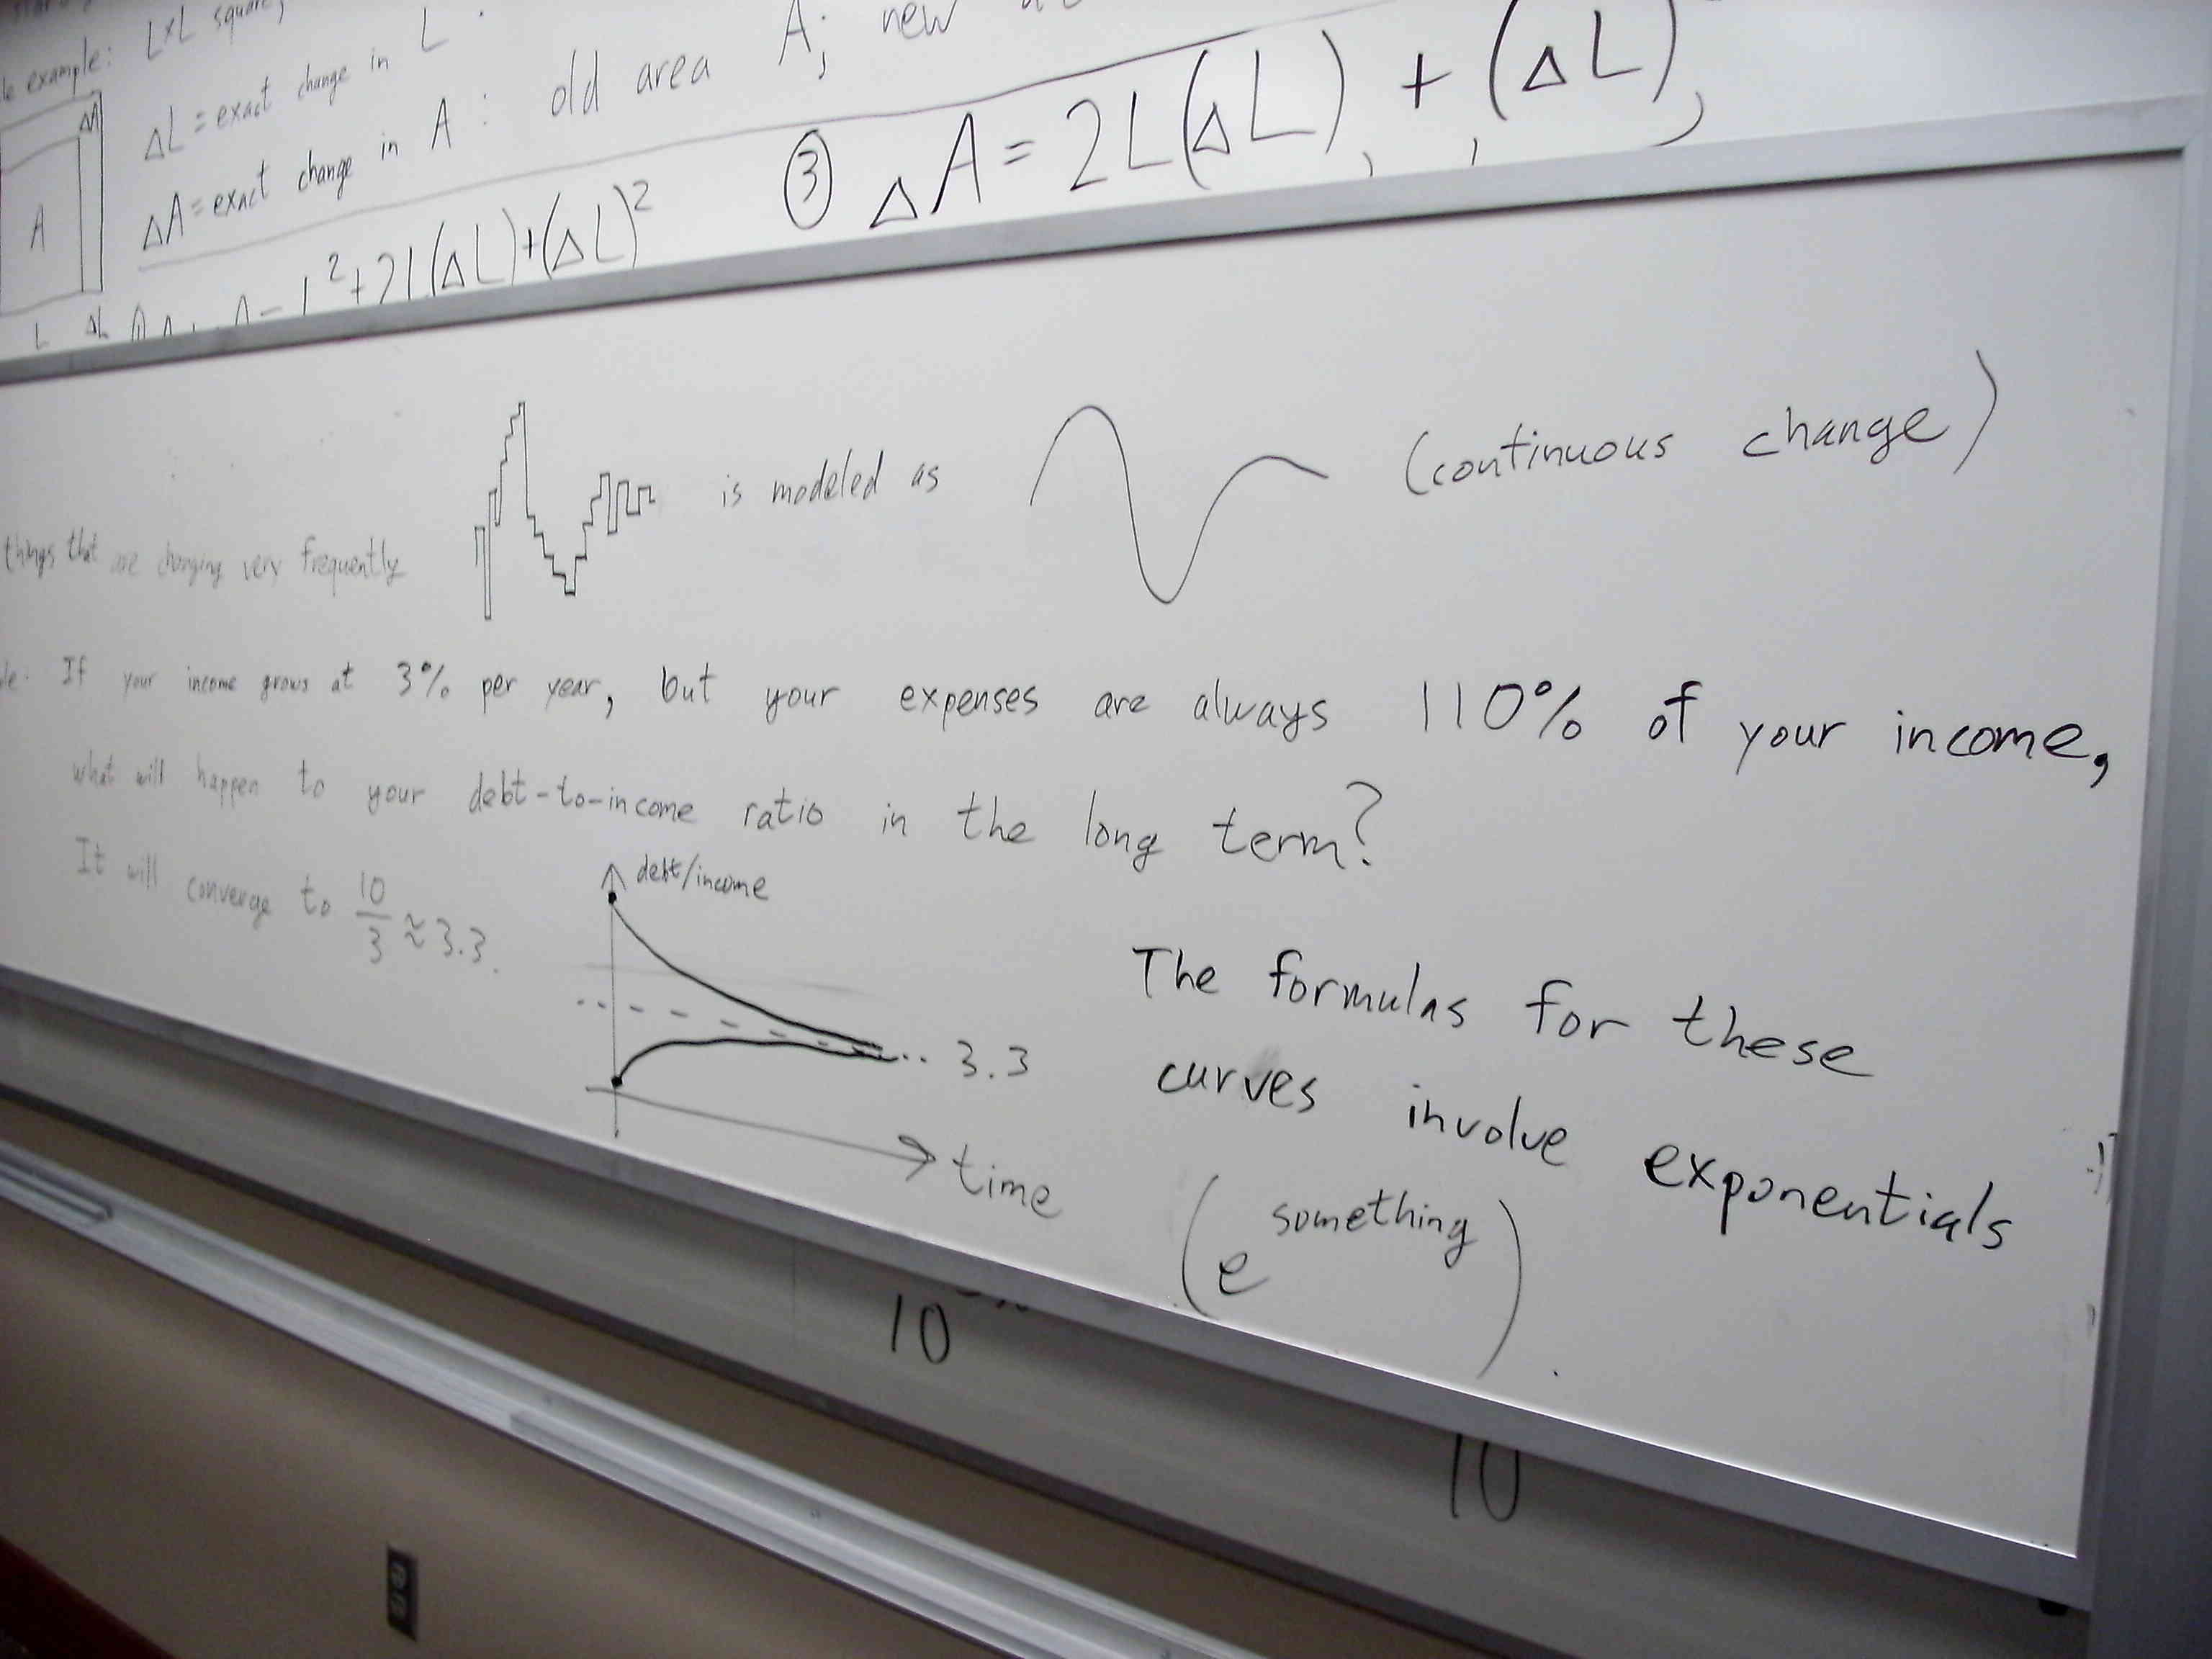 example: L×L square,
ΔL = exact change in L
ΔA = exact change in A : old area A; new
ΔA
A
L ΔL
L²+2L(ΔL)+(ΔL)²
③ ΔA = 2L(ΔL) + (ΔL)
things that are changing very frequently is modeled as (continuous change)
If your income grows at 3% per year, but your expenses are always 110% of your income,
what will happen to your debt-to-income ratio in the long term?
It will converge to 10/3 ≈ 3.3.
debt/income
3.3
time
The formulas for these
curves involve exponentials
(e^something).
10
10